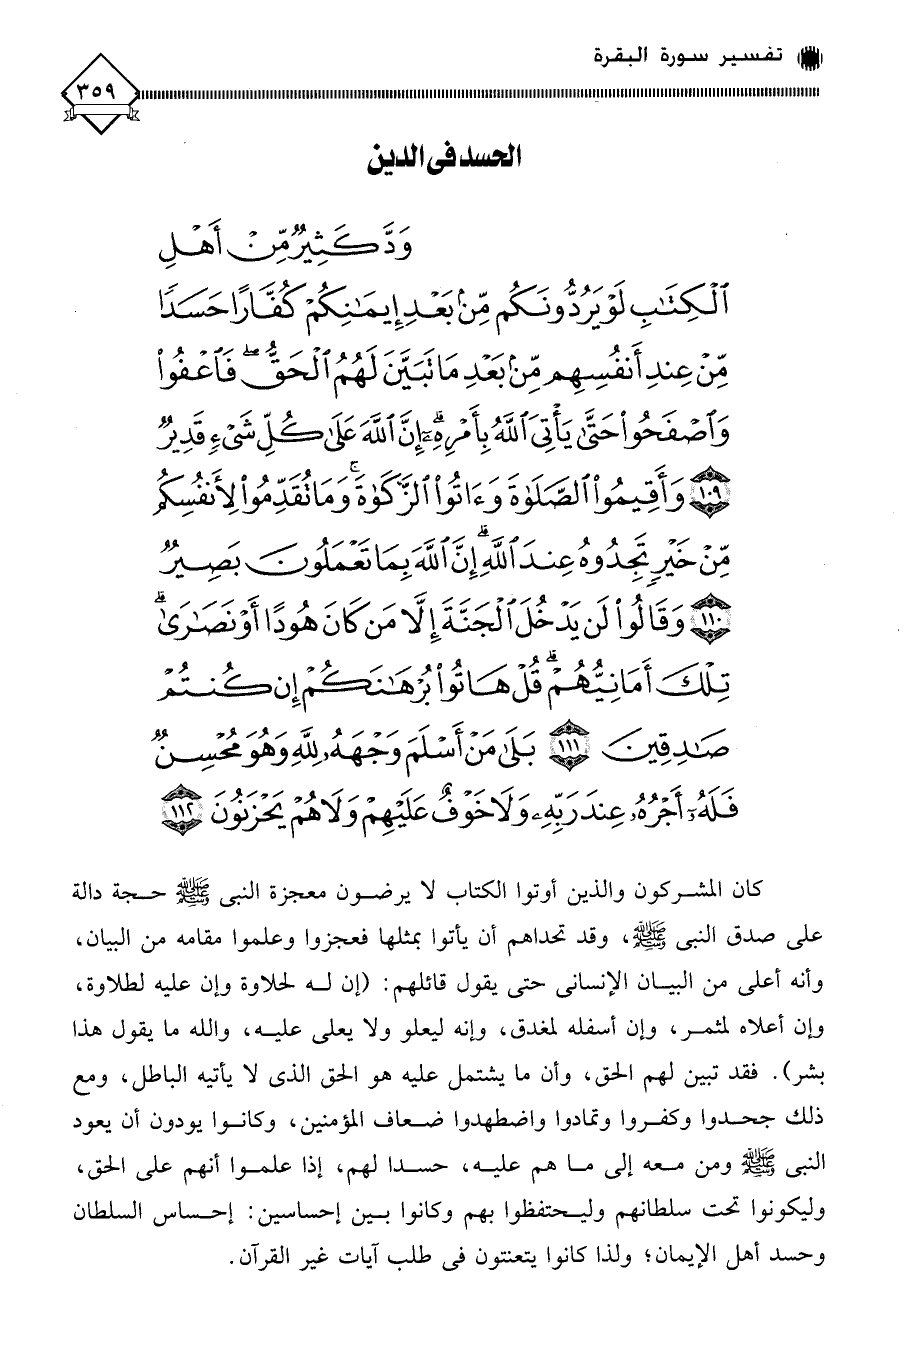 تفسير سورة البقرة
٣٥٩
الحسد فى الدين
وَدَّ كَثِيرٌ مِّنْ أَهْلِ
ٱلْكِتَٰبِ لَوْ يَرُدُّونَكُم مِّنۢ بَعْدِ إِيمَٰنِكُمْ كُفَّارًا حَسَدًا
مِّنْ عِندِ أَنفُسِهِم مِّنۢ بَعْدِ مَا تَبَيَّنَ لَهُمُ ٱلْحَقُّ ۖ فَٱعْفُوا۟
وَٱصْفَحُوا۟ حَتَّىٰ يَأْتِىَ ٱللَّهُ بِأَمْرِهِۦٓ ۗ إِنَّ ٱللَّهَ عَلَىٰ كُلِّ شَىْءٍ قَدِيرٌ
١٠٩ وَأَقِيمُوا۟ ٱلصَّلَوٰةَ وَءَاتُوا۟ ٱلزَّكَوٰةَ ۚ وَمَا تُقَدِّمُوا۟ لِأَنفُسِكُم
مِّنْ خَيْرٍ تَجِدُوهُ عِندَ ٱللَّهِ ۗ إِنَّ ٱللَّهَ بِمَا تَعْمَلُونَ بَصِيرٌ
١١٠ وَقَالُوا۟ لَن يَدْخُلَ ٱلْجَنَّةَ إِلَّا مَن كَانَ هُودًا أَوْ نَصَٰرَىٰ ۗ
تِلْكَ أَمَانِيُّهُمْ ۗ قُلْ هَاتُوا۟ بُرْهَٰنَكُمْ إِن كُنتُمْ
صَٰدِقِينَ ١١١ بَلَىٰ مَنْ أَسْلَمَ وَجْهَهُۥ لِلَّهِ وَهُوَ مُحْسِنٌ
فَلَهُۥٓ أَجْرُهُۥ عِندَ رَبِّهِۦ وَلَا خَوْفٌ عَلَيْهِمْ وَلَا هُمْ يَحْزَنُونَ ١١٢
كان المشركون والذين أوتوا الكتاب لا يرضون معجزة النبى ﷺ حجة دالة
على صدق النبى ﷺ، وقد تحداهم أن يأتوا بمثلها فعجزوا وعلموا مقامه من البيان،
وأنه أعلى من البيان الإنسانى حتى يقول قائلهم: (إن له لحلاوة وإن عليه لطلاوة،
وإن أعلاه لمثمر، وإن أسفله لمغدق، وإنه ليعلو ولا يعلى عليه، والله ما يقول هذا
بشر). فقد تبين لهم الحق، وأن ما يشتمل عليه هو الحق الذى لا يأتيه الباطل، ومع
ذلك جحدوا وكفروا وتمادوا واضطهدوا ضعاف المؤمنين، وكانوا يودون أن يعود
النبى ﷺ ومن معه إلى ما هم عليه، حسدا لهم، إذا علموا أنهم على الحق،
وليكونوا تحت سلطانهم وليحتفظوا بهم وكانوا بين إحساسين: إحساس السلطان
وحسد أهل الإيمان؛ ولذا كانوا يتعنتون فى طلب آيات غير القرآن.